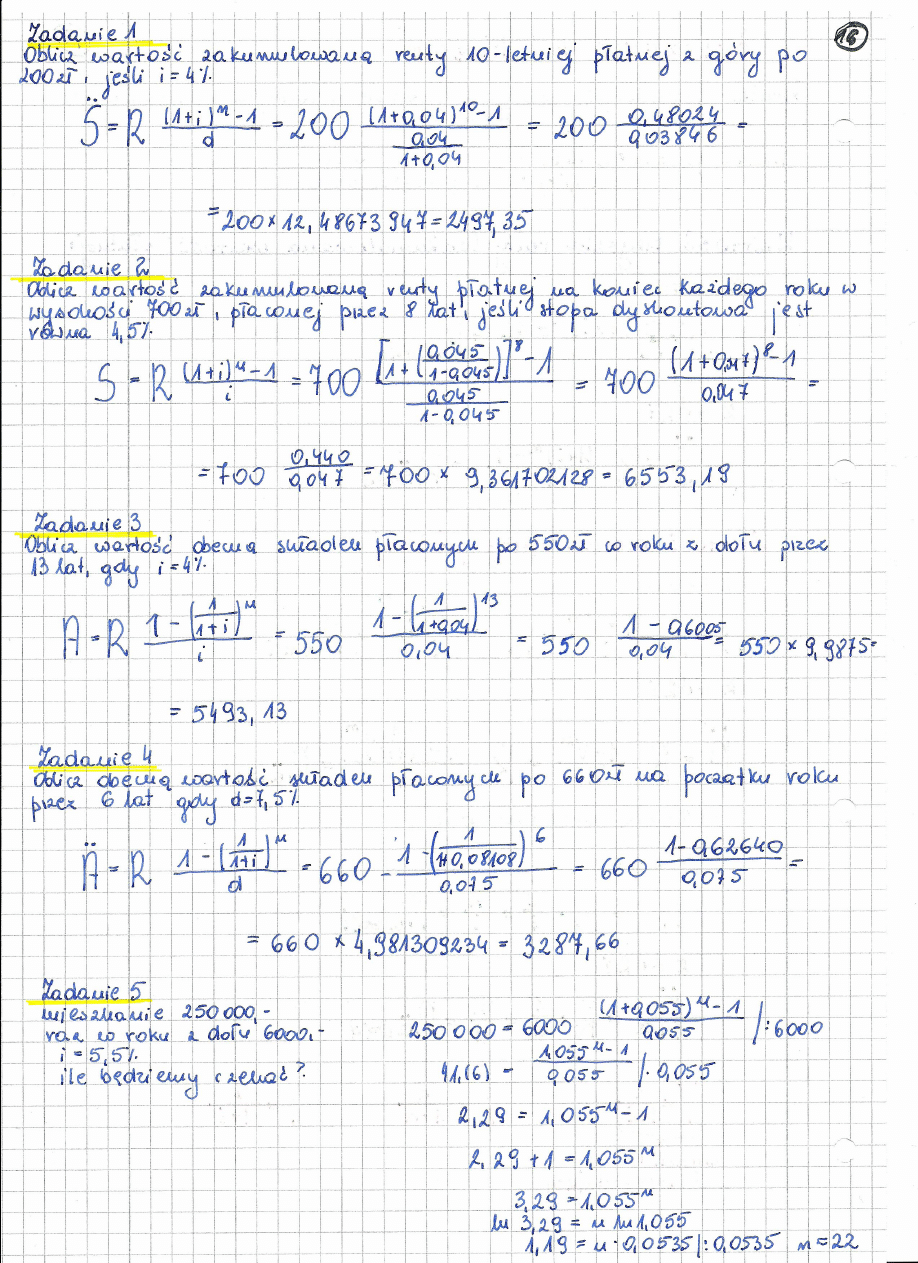 Zadanie 1
16
Oblicz wartość zakumulowaną renty 10-letniej płatnej z góry po
200zł, jeśli i=4%.
S̈ = R ((1+i)^n - 1)/d = 200 ((1+0,04)^10 - 1)/(0,04/(1+0,04)) = 200 0,48024/0,03846 =
= 200 × 12,48673947 = 2497,35
Zadanie 2
Oblicz wartość zakumulowaną renty płatnej na koniec każdego roku w
wysokości 700zł, płaconej przez 8 lat, jeśli stopa dyskontowa jest
równa 4,5%.
S = R ((1+i)^n - 1)/i = 700 ([1+(0,045/(1-0,045))]^8 - 1)/(0,045/(1-0,045)) = 700 ((1+0,047)^8 - 1)/0,047 =
= 700 0,440/0,047 = 700 × 9,361702128 = 6553,19
Zadanie 3
Oblicz wartość obecną składek płaconych po 550zł co roku z dołu przez
13 lat, gdy i=4%.
A = R (1-(1/(1+i))^n)/i = 550 (1-(1/(1+0,04))^13)/0,04 = 550 (1-0,6005)/0,04 = 550 × 9,9875=
= 5493,13
Zadanie 4
Oblicz obecną wartość składek płaconych po 660zł na początku roku
przez 6 lat gdy d=7,5%.
Ä = R (1-(1/(1+i))^n)/d = 660 (1-(1/(1+0,08108))^6)/0,075 = 660 (1-0,62640)/0,075 =
= 660 × 4,981309234 = 3287,66
Zadanie 5
mieszkanie 250 000,-
raz w roku z dołu 6000,-
i=5,5%
ile będziemy czekać?
250 000 = 6000 ((1+0,055)^n - 1)/0,055 /:6000
41,(6) = (1,055^n - 1)/0,055 /· 0,055
2,29 = 1,055^n - 1
2,29 + 1 = 1,055^n
3,29 = 1,055^n
ln 3,29 = n ln 1,055
1,19 = n · 0,0535 /:0,0535 n=22